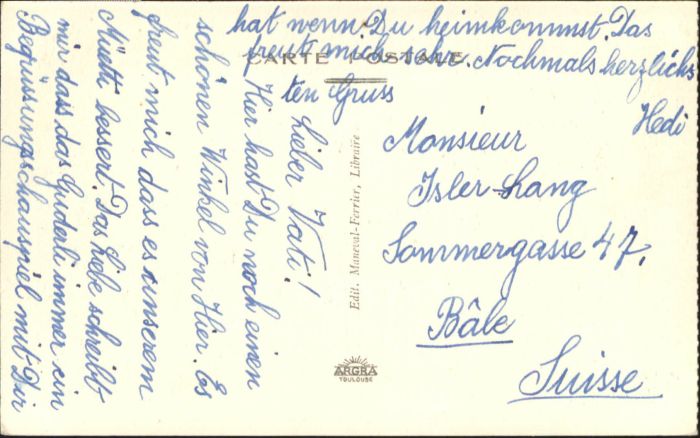 Lieber Vati!
Hier hast Du noch einen
schönen Winkel von Hier. Es
freut mich dass es unserem
Muetti bessert. Das liebe schreibt
mir dass das Guderli immer ein
Begrüssungschauspiel mit Dir
hat wenn Du heimkommst. Das
freut mich sehr. Nochmals herzlichs
ten Gruss
Hedi
CARTE POSTALE
Edit. Maneval-Ferrier, Libraire
ARGRA
TOULOUSE
Monsieur
Isler-Lang
Sommergasse 47.
Bâle
Suisse